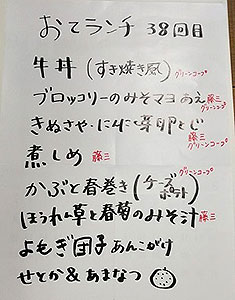 おてランチ 38回目
牛丼(すき焼き風)
グリーンコープ
ブロッコリーのみそマヨあえ 藤三
グリーンコープ
きぬさや・にんにく芽卵とじ
藤三
グリーンコープ
煮しめ 藤三
グリーンコープ
かぶと春巻き(チーズポテト)
ほうれん草と春菊のみそ汁 藤三
よもぎ団子あんこがけ
せとか&あまなつ